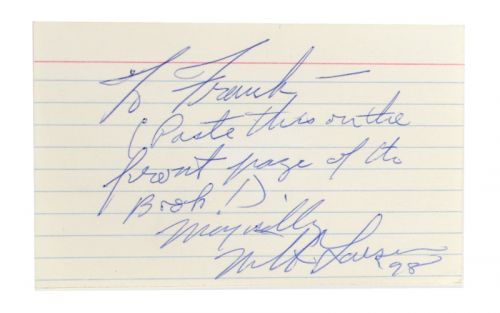 To Frank —
(Paste this on the
front page of the
Book!).
Magically
Milt Larsen
98